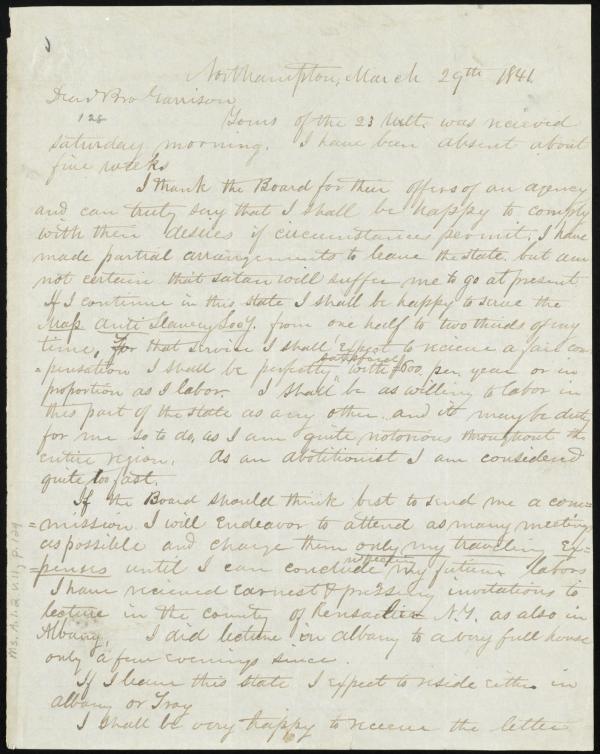 Northampton, March 29th 1841
Dear Bro Garrison,
Yours of the 23 Ult. was recieved
saturday morning. I have been absent about
five weeks
I thank the Board for their offers of an agency
and can truly say that I shall be happy to comply
with their desires if circumstances permit. I have
made partial arrangements to leave the state, but am
not certain that satan will suffer me to go at present
If I continue in this state I shall be happy to serve the
Mass Anti Slavery Socy. from one half to two thirds of my
time, For that service I shall expect to recieve a fair com
=pensation I shall be perfectly satisfied with $600. per. year or in
proportion as I labor. I shall be as willing to labor in
this part of the state as any other, and it may be duty
for me so to do, as I am quite notorious throughout the
entire region. As an abolitionist I am considered
quite too fast.
If the Board should think best to send me a com=
=mission I will endeavor to attend as many meetings
as possible and charge them only my traveling Ex=
=penses until I can conclude respecting my future labors
I have recieved earnest & pressing invitations to
lecture in the county of Rensaelier N.Y. as also in
Albany. I did lecture in albany to a very full house
only a few evenings since.
If I leave this state I expect to reside either in
albany or Troy
I shall be very happy to receive the letter
Ms.A.1.2 v.11, p.129